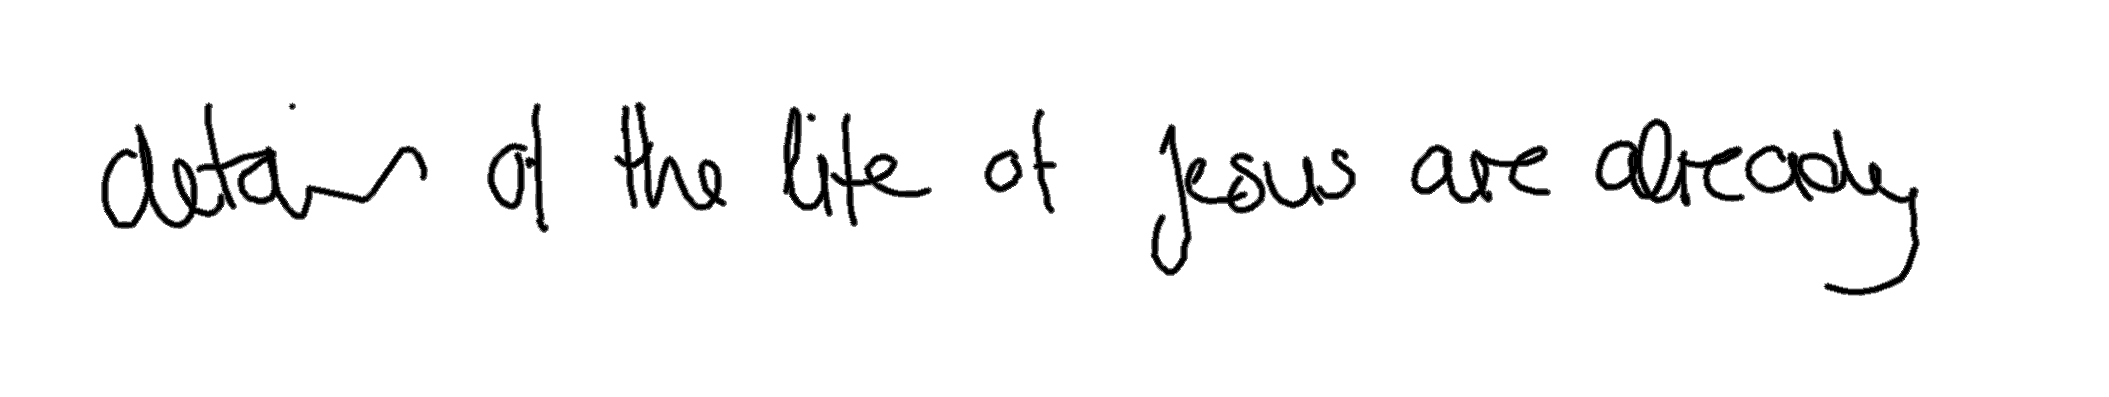 details of the life of Jesus are already